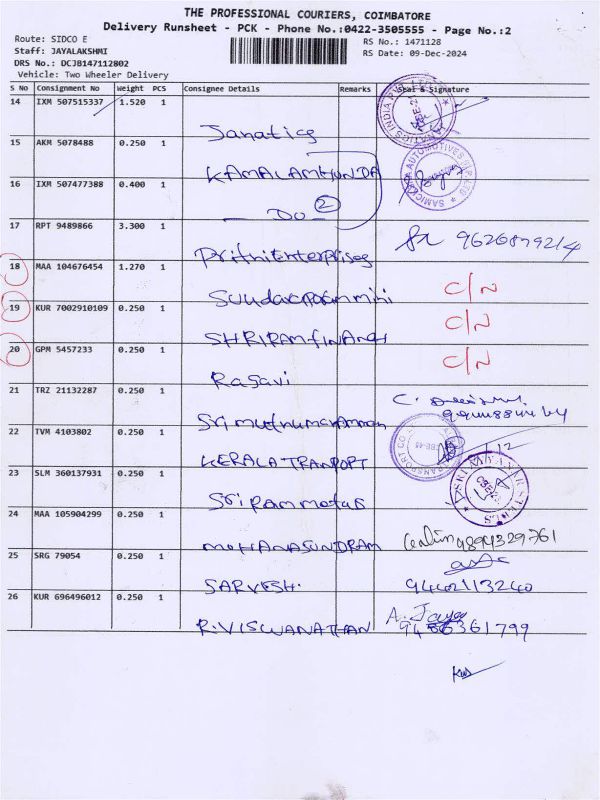 THE PROFESSIONAL COURIERS, COIMBATORE
Delivery Runsheet - PCK - Phone No.:0422-3505555 - Page No.:2
Route: SIDCO E
RS No.: 1471128
Staff: JAYALAKSHMI
RS Date: 09-Dec-2024
DRS No.: DCJB147112802
Vehicle: Two Wheeler Delivery
S No Consignment No Weight PCS Consignee Details Remarks Seal & Signature
14 IXM 507515337 1.520 1
Janatics
15 AKM 5078488 0.250 1
KAMALAMHUNDA
16 IXM 507477388 0.400 1
- DO - 2
17 RPT 9489866 3.300 1
PrithiEnterprises
18 MAA 104676454 1.270 1
C/N
19 KUR 7002910109 0.250 1
SHRIRAMFINANCE C/N
20 GPM 5457233 0.250 1
Rasavi C/N
21 TRZ 21132287 0.250 1
Srimuthumaramman
22 TVM 4103802 0.250 1
KERALATRANPORT
23 SLM 360137931 0.250 1
Sri Rammotas
24 MAA 105904299 0.250 1
MOHANASUNDRAM 9894329761
25 SRG 79054 0.250 1
SARVESH. 9442113240
26 KUR 696496012 0.250 1
A. Jaya
R.VISWANATHAN 9486361799